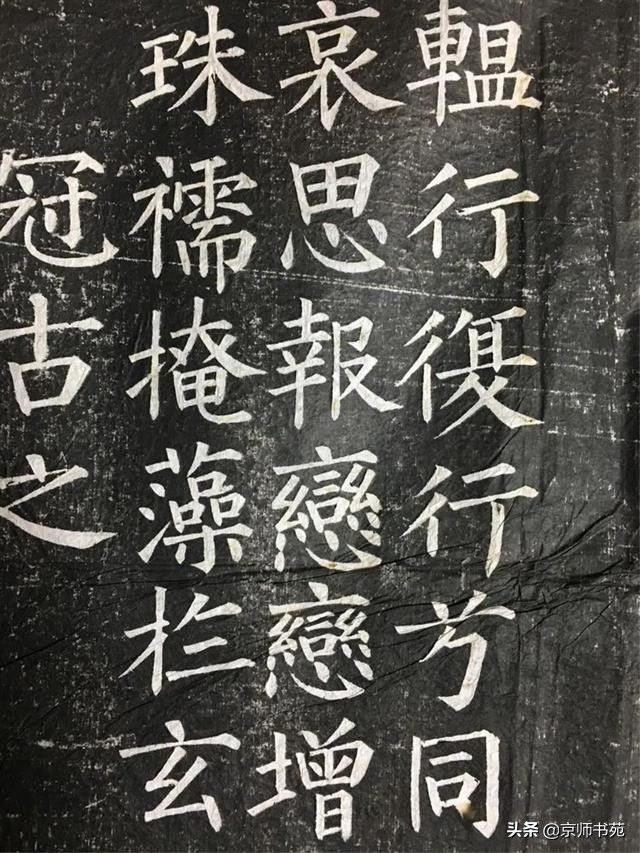 輼行復行兮同
哀思報戀戀增
珠襦掩藻扵玄
冠古之
头条 @京师书苑